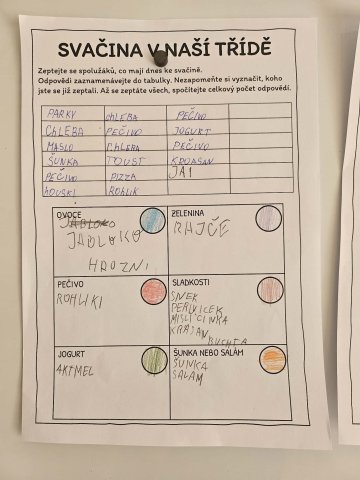 SVAČINA V NAŠÍ TŘÍDĚ
Zeptejte se spolužáků, co mají dnes ke svačině.
Odpovědi zaznamenávejte do tabulky. Nezapomeňte si vyznačit, koho
jste se již zeptali. Až se zeptáte všech, spočítejte celkový počet odpovědí.
PARKY CHLEBA PEČIVO
CHLEBA PEČIVO JOGURT
MASLO CHLEBA PEČIVO
ŠUNKA TOUST KROASAN
PEČIVO PIZZA JA1
HOUSKI ROHLIK
OVOCE ZELENINA
JABLOKO RAJČE
HROZNI
PEČIVO SLADKOSTI
ROHLIKI
PERNICEK
MISLI CINKA
BUCHTA
JOGURT ŠUNKA NEBO SALÁM
AKTMEL ŠUNKA
SALAM